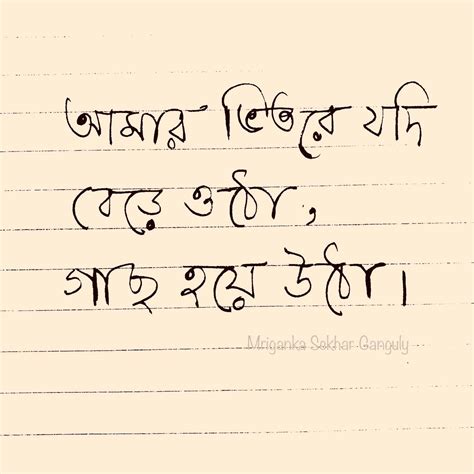 আমার ভিতরে যদি
বেড়ে ওঠো,
গাছ হয়ে উঠো।
Mriganka Sekhar Ganguly